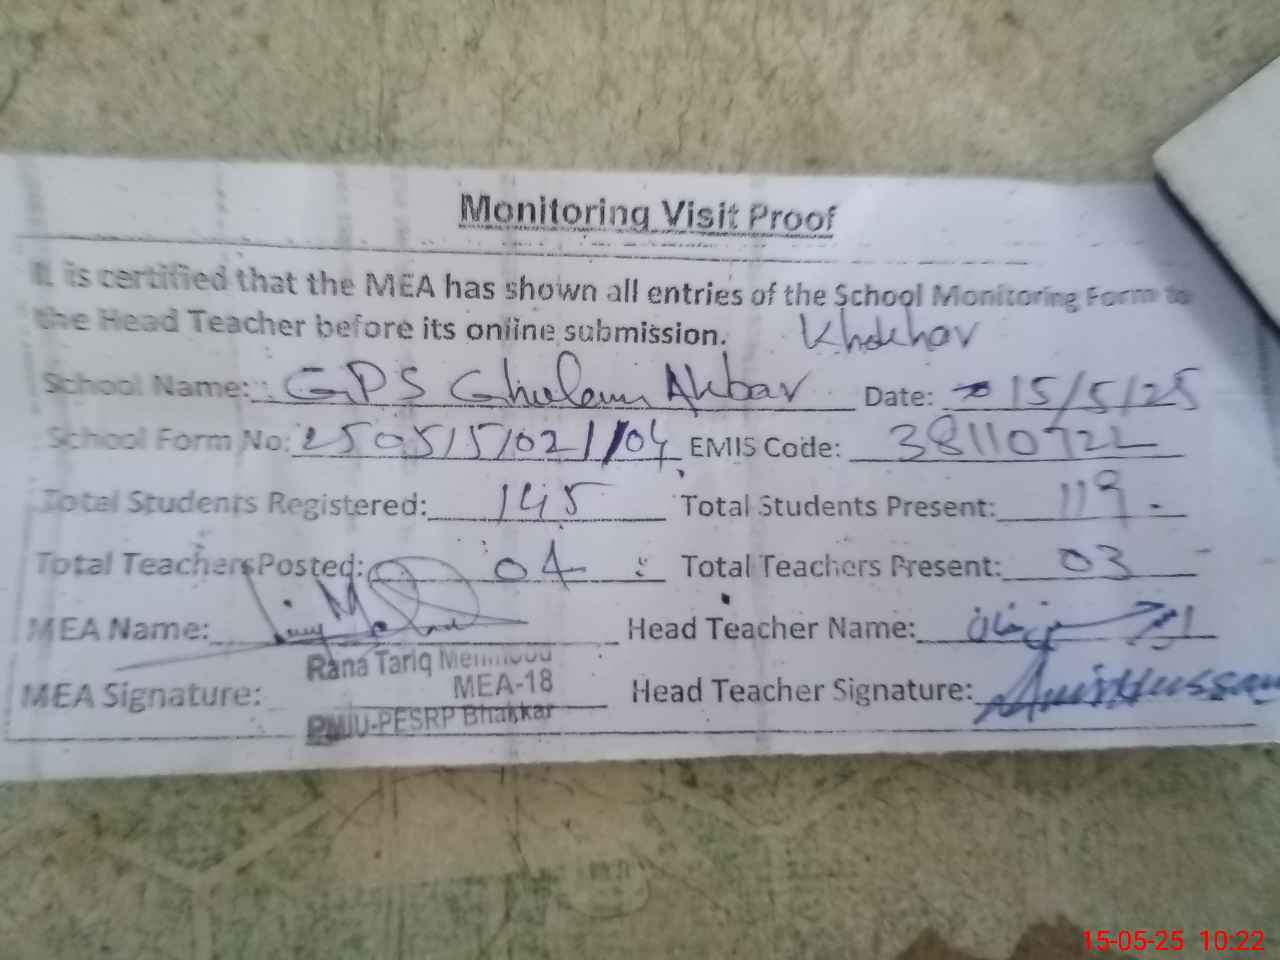 Monitoring Visit Proof
It is certified that the MEA has shown all entries of the School Monitoring Form to
the Head Teacher before its online submission. Khokhar
School Name: GPS Ghulam Akbar Date: 15/5/25
School Form No: 250515/021/04 EMIS Code: 38110722
Total Students Registered: 145 Total Students Present: 119
Total Teachers Posted: 04 Total Teachers Present: 03
MEA Name: Head Teacher Name:
Rana Tariq Mehmood
MEA-18
MEA Signature: Head Teacher Signature: Anis Hussain
PMIU-PESRP Bhakkar
15-05-25 10:22